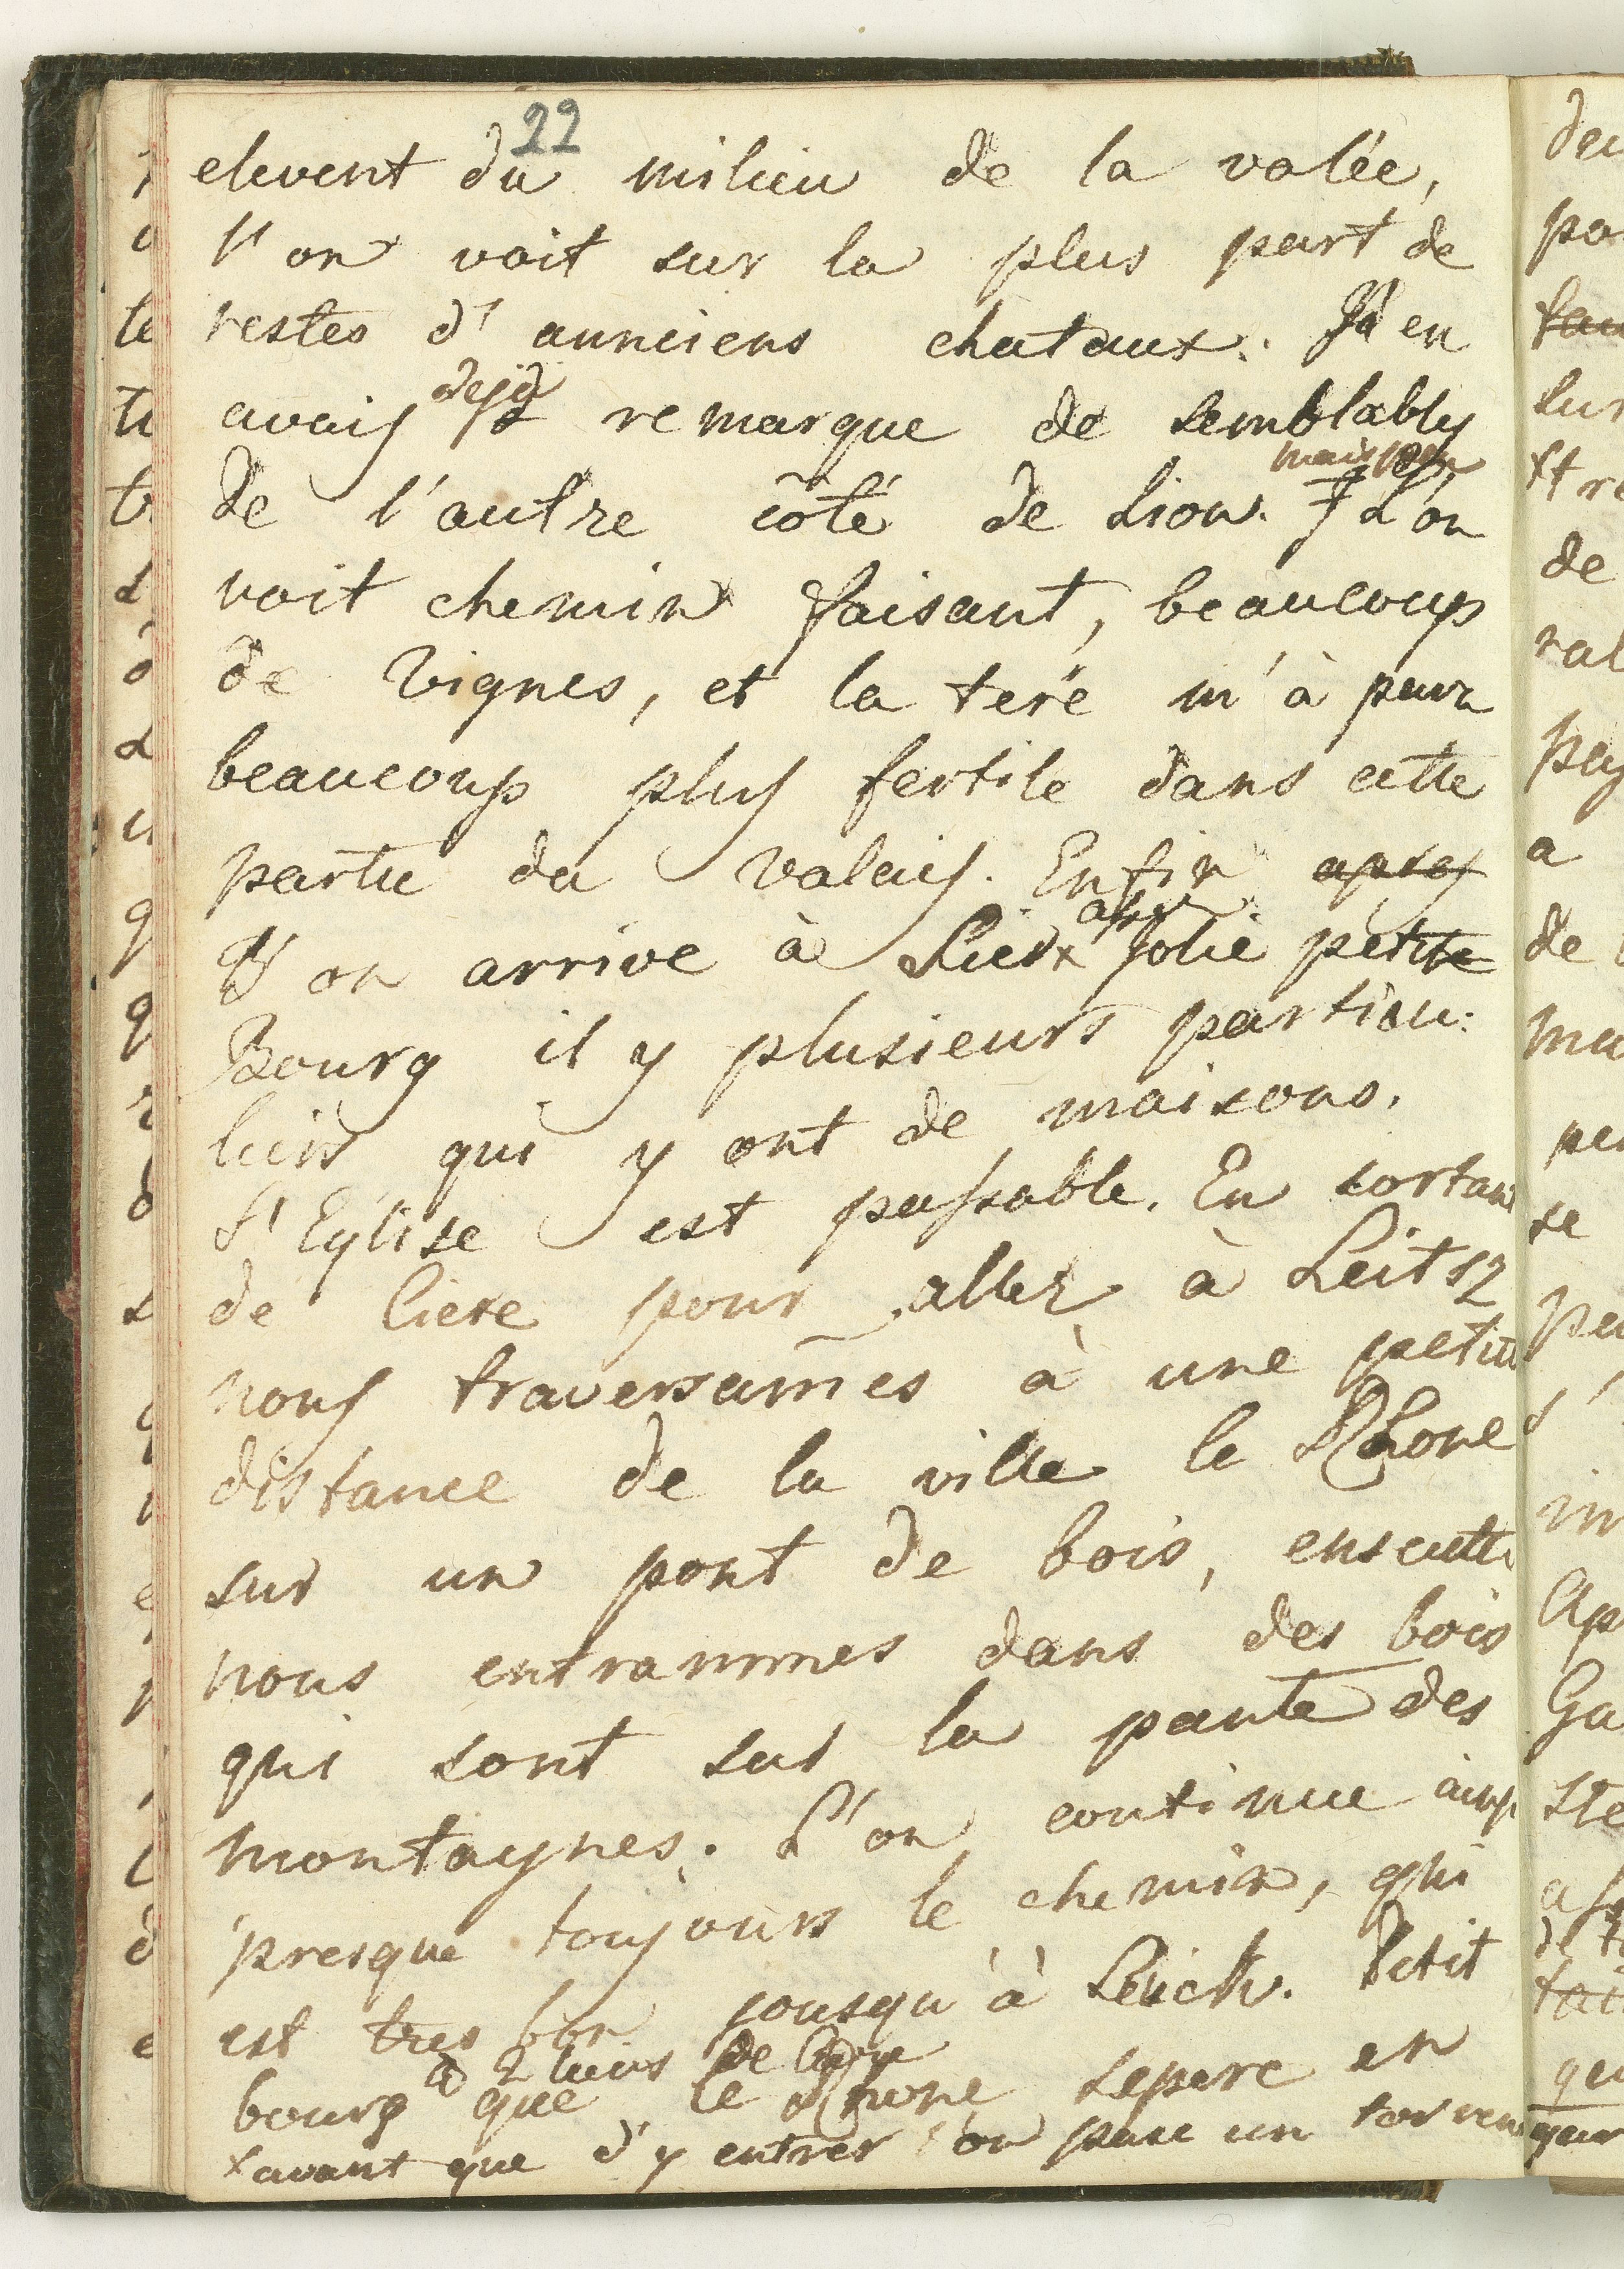 22
elevent du milieu de la valée,
l'on voit sur la plus part de
restes d'anneiens chataux. J'en
deja
avais remarque de semblables
mais peu
de l'autre côté de Sion. L'on
voit chemin faisant, beaucoup
de Vignes, et la teré m'à paru
beaucoup plus fertile dans cette
partie du Valais. Enfin apres
L'on arrive à Siere assez Jolie petite
Bourg il y plusieurs particu:
liers qui y ont de maisons.
L'Eglise est passable. En sortant
de Siere pour aller à Leitsz
nous traversames à une petite
distance de la ville le Rhone
sur un pont de bois, ensuitte
nous entrammes dans des bois
qui sont sur la pante des
montagnes. L'on continue ainsi
presque toujours le chemin, qui
est tres bon jousqu'à Leuck. Petit
à 2 lieus de Siere
bourg que le Rhone separe en
x avant que d'y entrer l'on passe un torrent